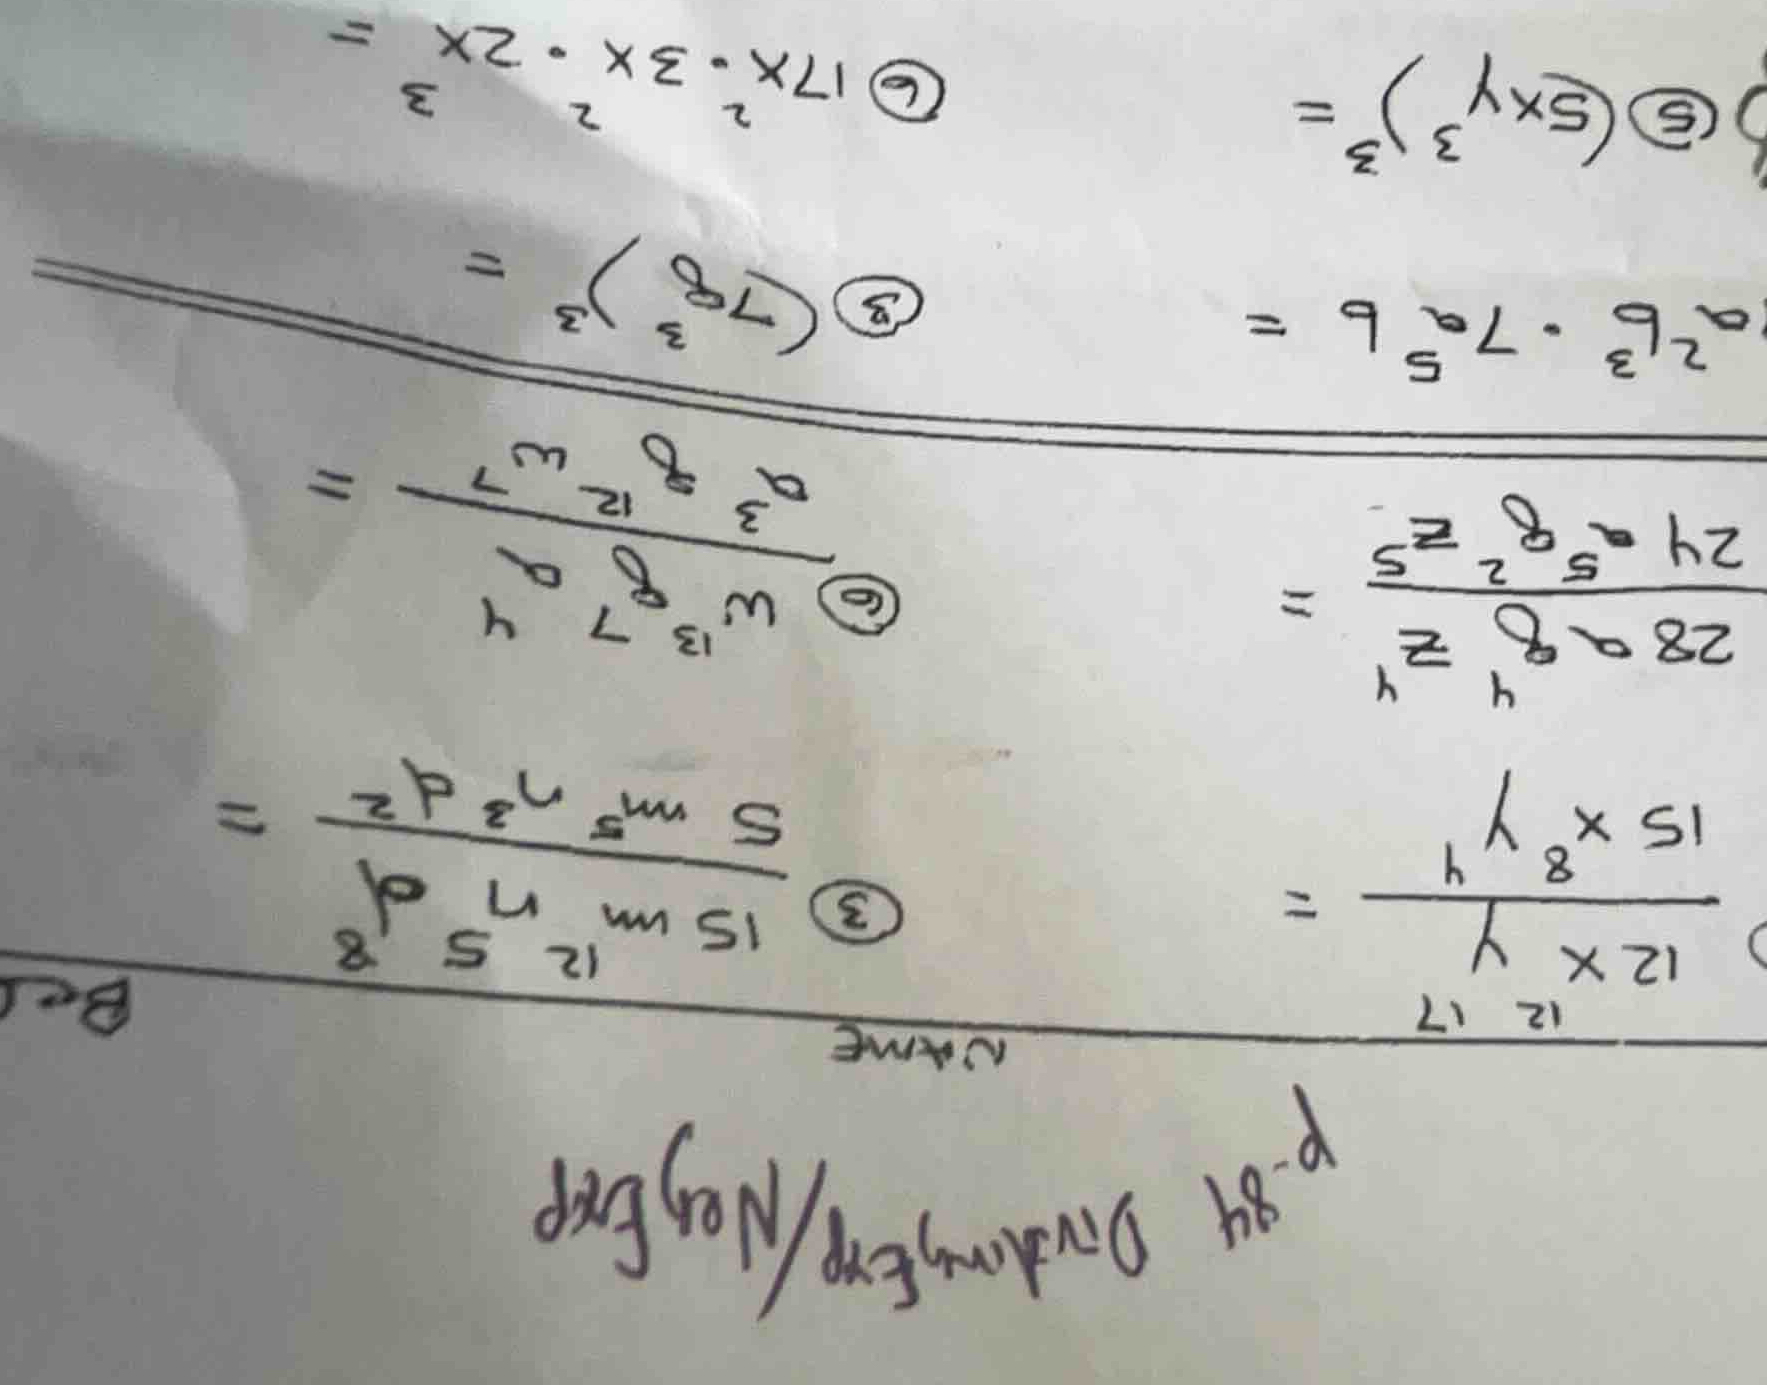 P-84 Dividing Exp/Neg Exp
NAME
12 x¹² y¹⁷
15 x⁸ y⁴ =
③ 15 m¹² n⁵ d⁸
5 m⁵ n³ d² =
28 a g⁴ z⁴
24 a⁵ g² z⁵ =
⑥ w¹³ g⁷ a⁴
a³ g¹² w⁷ =
a² b³ · 7a⁵ b =
③ (7g³)³ =
⑤ (5xy³)³ =
⑥ 17x² · 3x² · 2x³ =